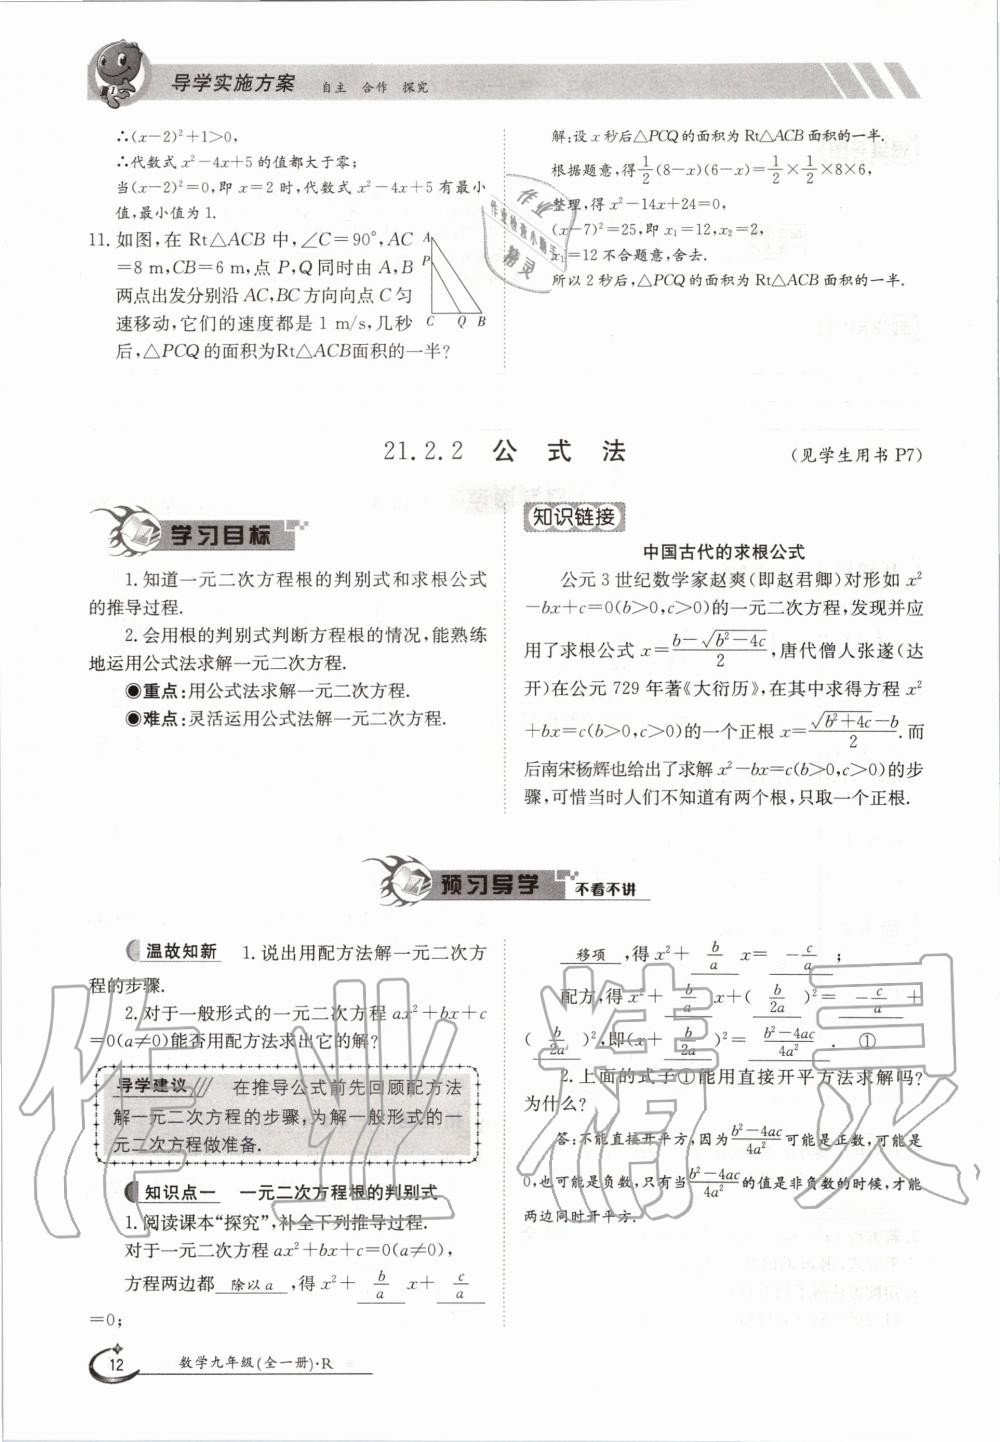 导学实施方案 自主 合作 探究
∴(x-2)²+1>0,
∴代数式 x²-4x+5 的值都大于零;
当(x-2)²=0,即 x=2 时,代数式 x²-4x+5 有最小
值,最小值为 1.
11. 如图,在 Rt△ACB 中,∠C=90°,AC
=8 m,CB=6 m,点 P,Q 同时由 A,B
两点出发分别沿 AC,BC 方向向点 C 匀
速移动,它们的速度都是 1 m/s,几秒
后,△PCQ 的面积为Rt△ACB面积的一半?
A
P
C Q B
解:设 x 秒后△PCQ 的面积为 Rt△ACB 面积的一半.
根据题意,得 1/2(8-x)(6-x)=1/2×1/2×8×6,
整理,得 x²-14x+24=0,
(x-7)²=25,即 x₁=12,x₂=2,
x₁=12 不合题意,舍去.
所以 2 秒后,△PCQ 的面积为 Rt△ACB 面积的一半.
作业
作业检查小助手
精灵
21.2.2 公式法
(见学生用书 P7)
学习目标
1. 知道一元二次方程根的判别式和求根公式
的推导过程.
2. 会用根的判别式判断方程根的情况,能熟练
地运用公式法求解一元二次方程.
◉重点:用公式法求解一元二次方程.
◉难点:灵活运用公式法解一元二次方程.
知识链接
中国古代的求根公式
公元 3 世纪数学家赵爽(即赵君卿)对形如 x²
-bx+c=0(b>0,c>0)的一元二次方程,发现并应
用了求根公式 x=(b-√(b²-4c))/2,唐代僧人张遂(达
开)在公元 729 年著《大衍历》,在其中求得方程 x²
+bx=c(b>0,c>0)的一个正根 x=(√(b²+4c)-b)/2.而
后南宋杨辉也给出了求解 x²-bx=c(b>0,c>0)的步
骤,可惜当时人们不知道有两个根,只取一个正根.
预习导学 不看不讲
温故知新 1. 说出用配方法解一元二次方
程的步骤.
2. 对于一般形式的一元二次方程 ax²+bx+c
=0(a≠0)能否用配方法求出它的解?
导学建议 在推导公式前先回顾配方法
解一元二次方程的步骤,为解一般形式的一
元二次方程做准备.
知识点一 一元二次方程根的判别式
1. 阅读课本“探究”,补全下列推导过程.
对于一元二次方程 ax²+bx+c=0(a≠0),
方程两边都 除以 a ,得 x²+ b/a x+ c/a
=0;
移项 ,得 x²+ b/a x= -c/a ;
配方,得 x²+ b/a x+( b/2a )²= -c/a +
( b/2a )²,即(x+ b/2a )²= (b²-4ac)/4a² . ①
2. 上面的式子①能用直接开平方法求解吗?
为什么?
答:不能直接开平方,因为(b²-4ac)/4a²可能是正数,可能是
0,也可能是负数,只有当(b²-4ac)/4a²的值是非负数的时候,才能
两边同时开平方.
作业精灵
12 数学九年级(全一册)·R